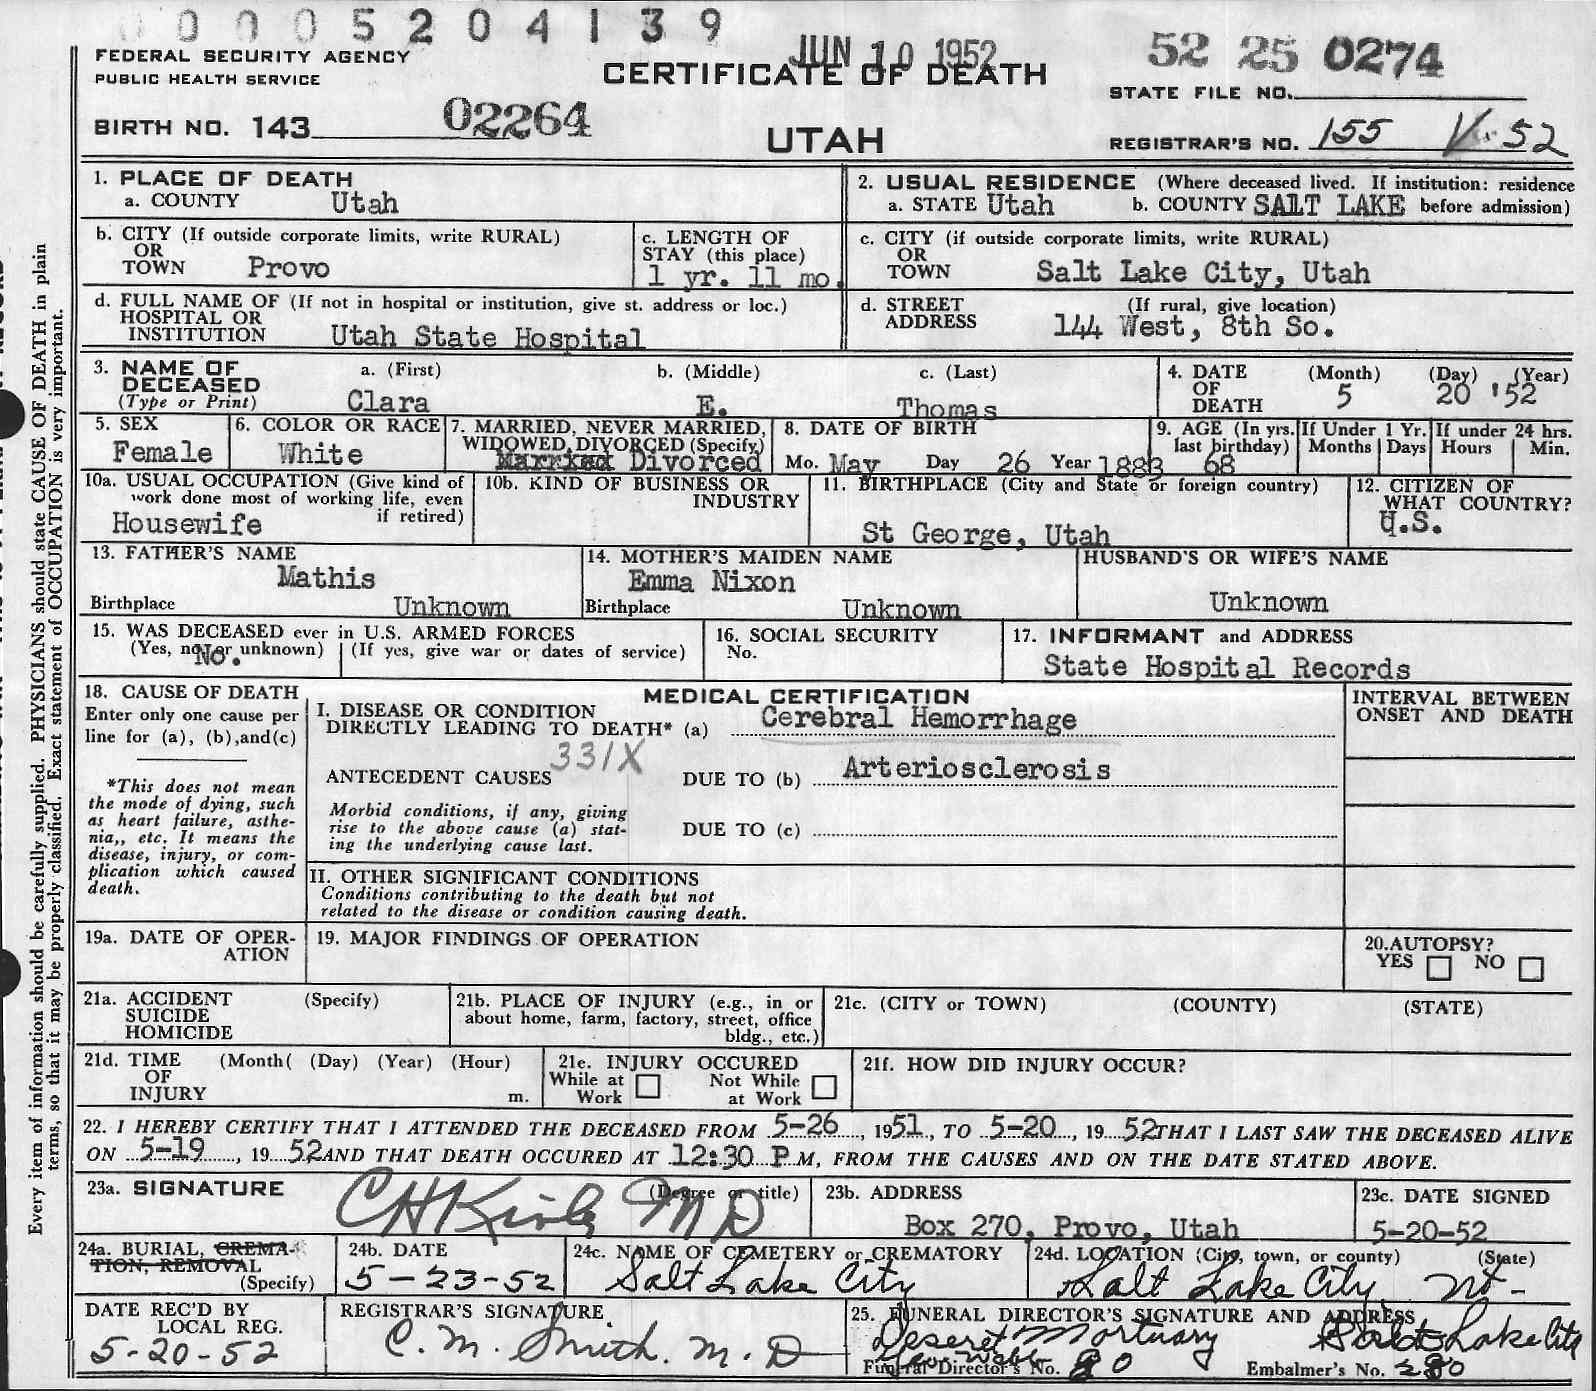 0 0 0 5 2 0 4 1 3 9
JUN 10 1952
52 25 0274
FEDERAL SECURITY AGENCY
PUBLIC HEALTH SERVICE
CERTIFICATE OF DEATH
STATE FILE NO.
BIRTH NO. 143 02264
UTAH
REGISTRAR'S NO. 155 V 52
1. PLACE OF DEATH
a. COUNTY Utah
2. USUAL RESIDENCE (Where deceased lived. If institution: residence
a. STATE Utah b. COUNTY SALT LAKE before admission)
b. CITY (If outside corporate limits, write RURAL)
OR
TOWN Provo
c. LENGTH OF
STAY (this place)
1 yr. 11 mo.
c. CITY (if outside corporate limits, write RURAL)
OR
TOWN Salt Lake City, Utah
d. FULL NAME OF (If not in hospital or institution, give st. address or loc.)
HOSPITAL OR
INSTITUTION Utah State Hospital
d. STREET (If rural, give location)
ADDRESS 144 West, 8th So.
3. NAME OF
DECEASED
(Type or Print)
a. (First) b. (Middle) c. (Last)
Clara E. Thomas
4. DATE (Month) (Day) (Year)
OF
DEATH 5 20 '52
5. SEX
Female
6. COLOR OR RACE
White
7. MARRIED, NEVER MARRIED,
WIDOWED, DIVORCED (Specify)
Married Divorced
8. DATE OF BIRTH
Mo. May Day 26 Year 1883
9. AGE (In yrs.
last birthday)
68
If Under 1 Yr.
Months Days
If under 24 hrs.
Hours Min.
10a. USUAL OCCUPATION (Give kind of
work done most of working life, even
if retired)
Housewife
10b. KIND OF BUSINESS OR
INDUSTRY
11. BIRTHPLACE (City and State or foreign country)
St George, Utah
12. CITIZEN OF
WHAT COUNTRY?
U.S.
13. FATHER'S NAME
Mathis
Birthplace Unknown
14. MOTHER'S MAIDEN NAME
Emma Nixon
Birthplace Unknown
HUSBAND'S OR WIFE'S NAME
Unknown
15. WAS DECEASED ever in U.S. ARMED FORCES
(Yes, no, or unknown) (If yes, give war or dates of service)
No.
16. SOCIAL SECURITY
No.
17. INFORMANT and ADDRESS
State Hospital Records
18. CAUSE OF DEATH
Enter only one cause per
line for (a), (b),and(c)
*This does not mean
the mode of dying, such
as heart failure, asthe-
nia,, etc. It means the
disease, injury, or com-
plication which caused
death.
MEDICAL CERTIFICATION
I. DISEASE OR CONDITION
DIRECTLY LEADING TO DEATH* (a) Cerebral Hemorrhage
331X
ANTECEDENT CAUSES DUE TO (b) Arteriosclerosis
Morbid conditions, if any, giving
rise to the above cause (a) stat-
ing the underlying cause last.
DUE TO (c)
II. OTHER SIGNIFICANT CONDITIONS
Conditions contributing to the death but not
related to the disease or condition causing death.
INTERVAL BETWEEN
ONSET AND DEATH
19a. DATE OF OPER-
ATION
19. MAJOR FINDINGS OF OPERATION
20.AUTOPSY?
YES NO
21a. ACCIDENT (Specify)
SUICIDE
HOMICIDE
21b. PLACE OF INJURY (e.g., in or
about home, farm, factory, street, office
bldg., etc.)
21c. (CITY or TOWN) (COUNTY) (STATE)
21d. TIME (Month( (Day) (Year) (Hour)
OF
INJURY m.
21e. INJURY OCCURED
While at Not While
Work at Work
21f. HOW DID INJURY OCCUR?
22. I HEREBY CERTIFY THAT I ATTENDED THE DECEASED FROM 5-26, 1951, TO 5-20, 19 52 THAT I LAST SAW THE DECEASED ALIVE
ON 5-19, 19 52 AND THAT DEATH OCCURED AT 12:30 P M, FROM THE CAUSES AND ON THE DATE STATED ABOVE.
23a. SIGNATURE (Degree or title)
M D
23b. ADDRESS
Box 270, Provo, Utah
23c. DATE SIGNED
5-20-52
24a. BURIAL, CREMA-
TION, REMOVAL
(Specify)
24b. DATE
5-23-52
24c. NAME OF CEMETERY or CREMATORY
Salt Lake City
24d. LOCATION (City, town, or county) (State)
Salt Lake City Ut-
DATE REC'D BY
LOCAL REG.
5-20-52
REGISTRAR'S SIGNATURE
C. M. Smith. M. D
25. FUNERAL DIRECTOR'S SIGNATURE AND ADDRESS
Deseret Mortuary Salt Lake City
Funeral Director's No. 80 Embalmer's No. 280
Every item of information should be carefully supplied. PHYSICIANS should state CAUSE OF DEATH in plain
terms, so that it may be properly classified. Exact statement of OCCUPATION is very important.